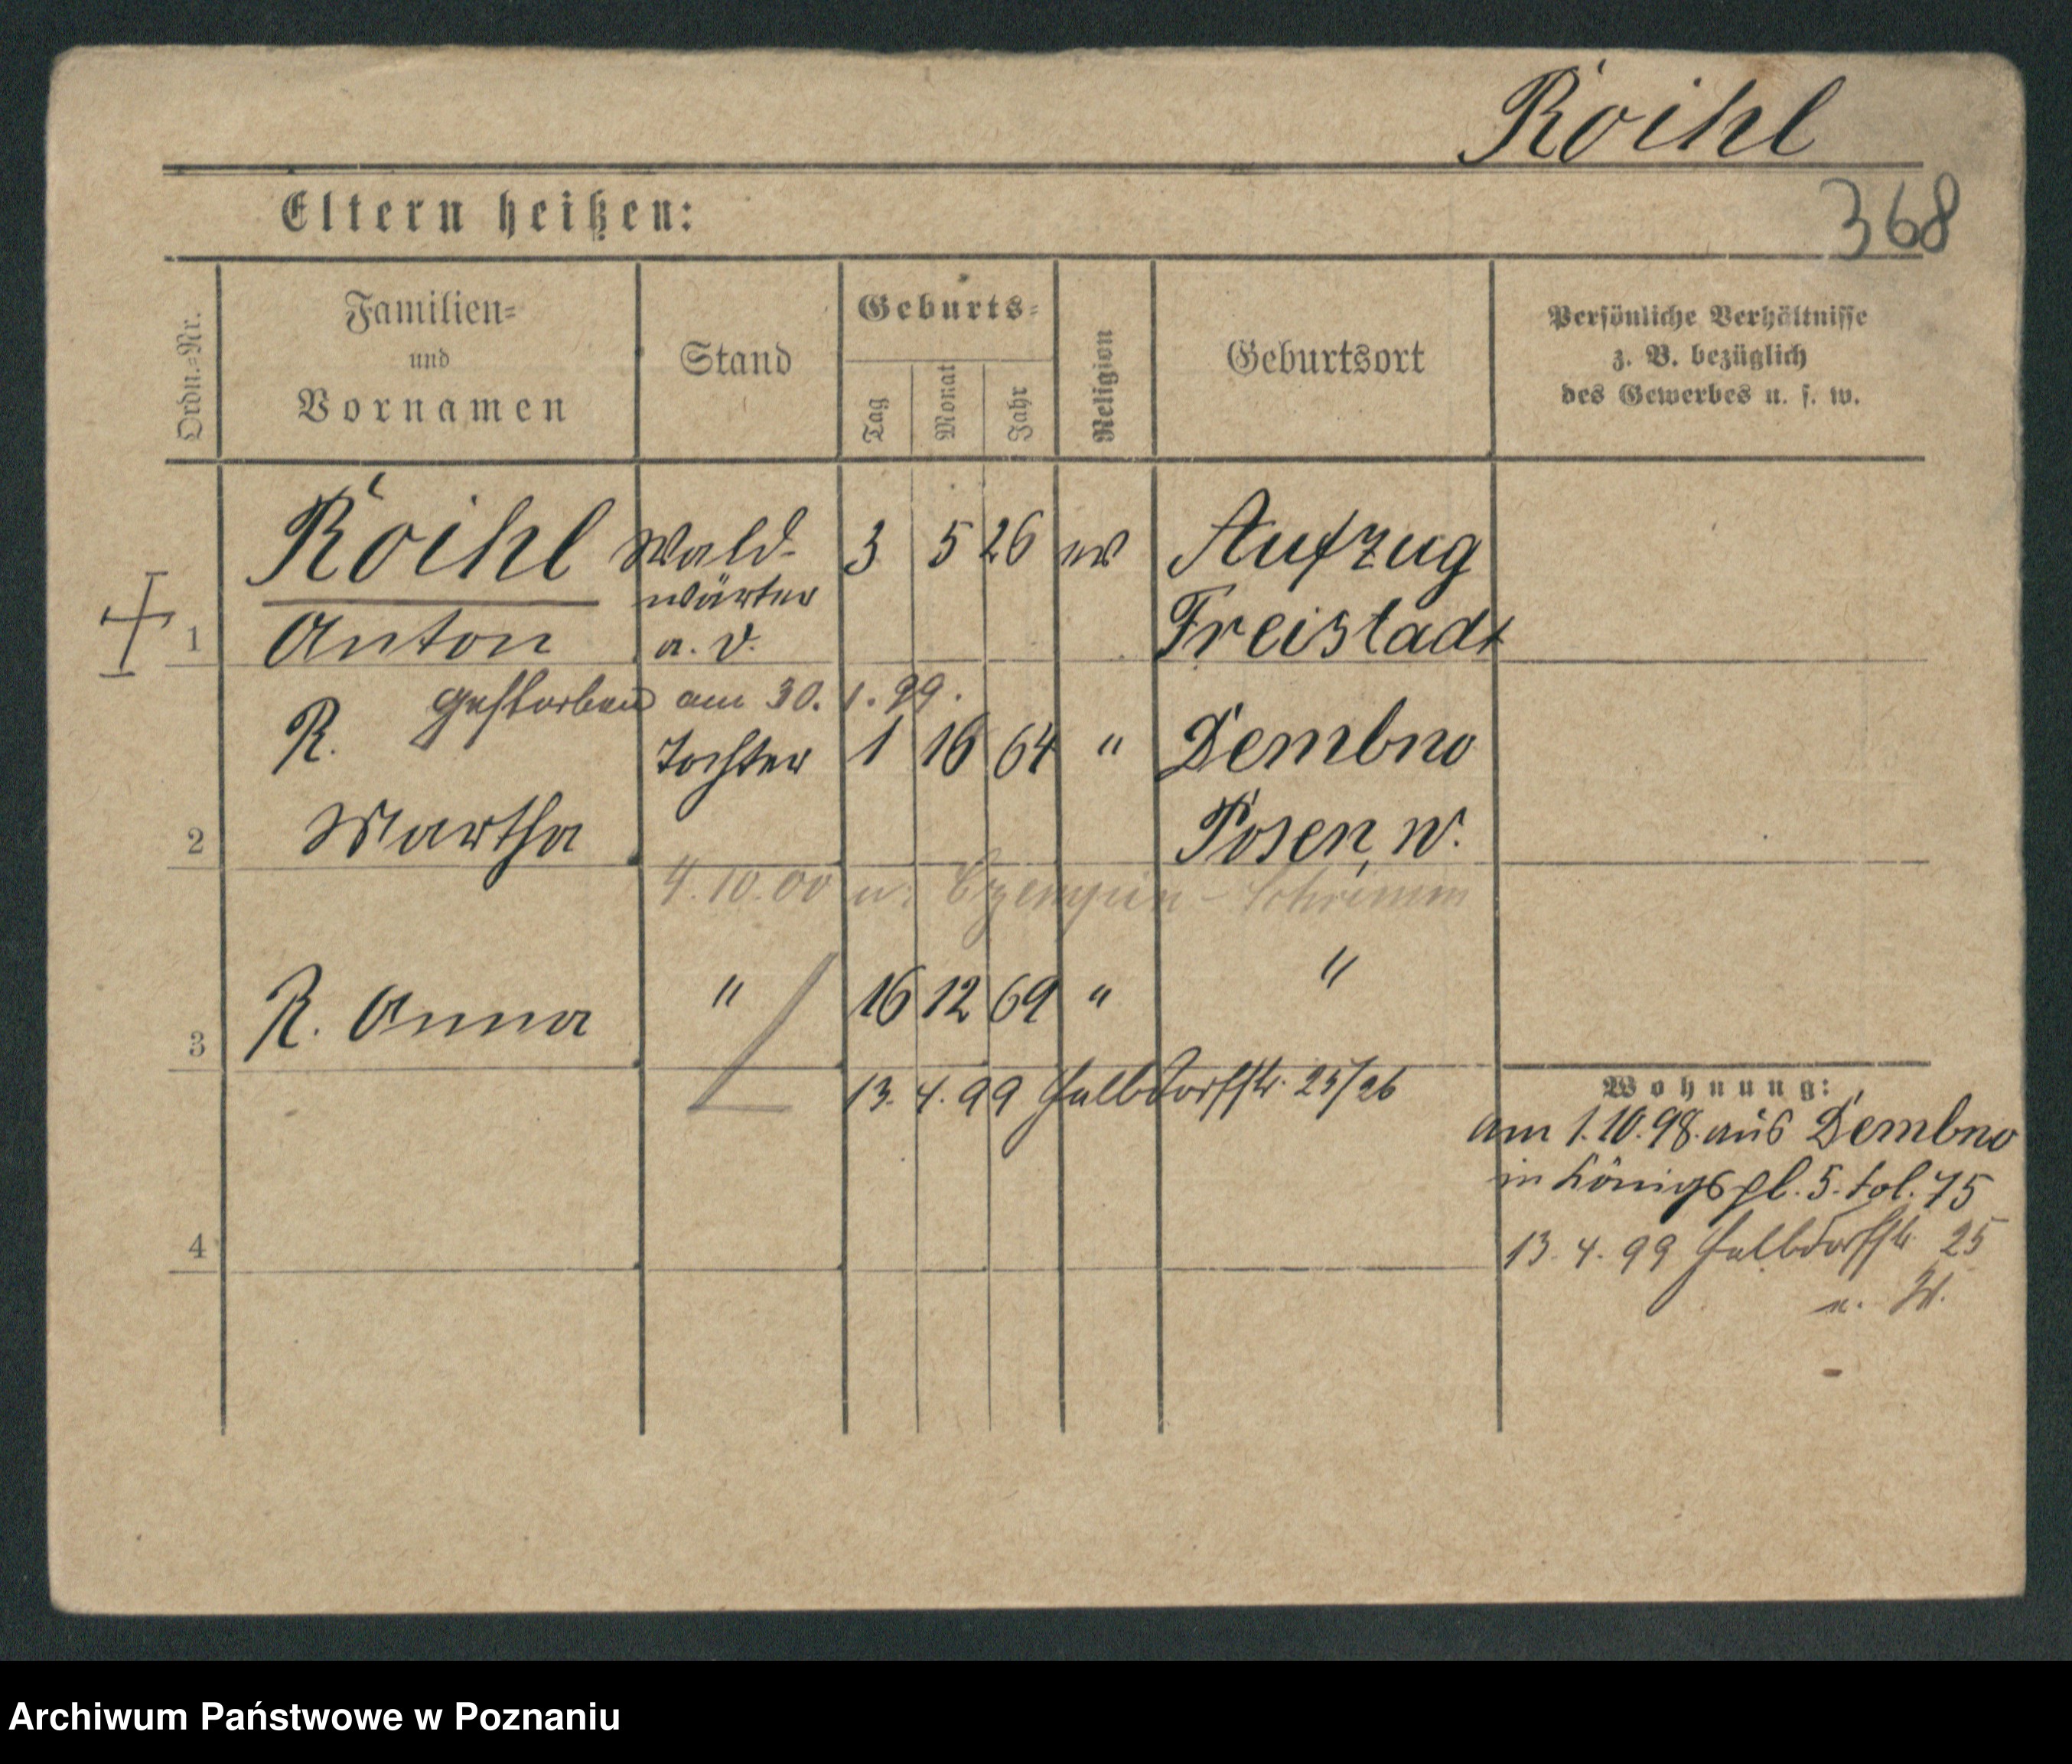 Roihl
368
Eltern heißen:
Ordn.=Nr.
Familien=
und
Vornamen
Stand
Geburts=
Tag
Monat
Jahr
Religion
Geburtsort
Persönliche Verhältnisse
z. B. bezüglich
des Gewerbes u. s. w.
1
Roihl
Anton
Wald-
wärter
a. D.
3 5 26 ev
Aufzug
Freistadt
gestorben am 30. 1. 99.
2
R.
Martha
Tochter 1 16 64 "
Dembno
Posen, W.
4.10.00 n. Czempin - Schrimm
3
R. Anna " 16 12 69 " "
13. 4. 99 Halbdorfstr. 25/26
4
Wohnung:
am 1.10.98. aus Dembno
in Königspl. 5. fol. 75
13. 4. 99 Halbdorfstr. 25
Archiwum Państwowe w Poznaniu